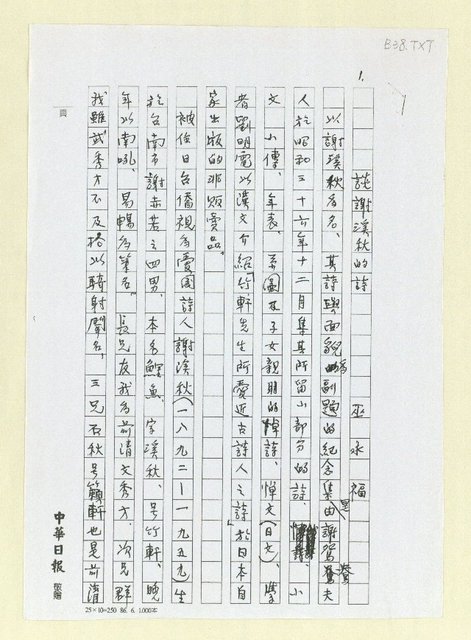 E38.TXT
1.
談謝溪秋的詩
巫永福
以謝溪秋為名、其詩與面貌為副題的紀念集是由謝鴛鴦夫
人於昭和三十六年十二月集其所留小部分的詩、小
文、小傳、年表、系圖及子女親朋的悼詩、悼文(日文)、學
者劉明電以漢文介紹「竹軒先生所愛近古詩人之詩」於日本自
家出版的非販賣品。
被住日台僑視為愛國詩人謝溪秋(一八九二—一九五九)生
於台南市謝赤若之四男、本名鯉魚、字溪秋、號竹軒、晚
年以南吼、易暢為筆名。長兄友我為前清文秀才、次兄群
我雖武秀才不及格以騎射聞名、三兄石秋號籟軒也是前清
中華日報 敬贈
25×10=250 86. 6. 1,000本